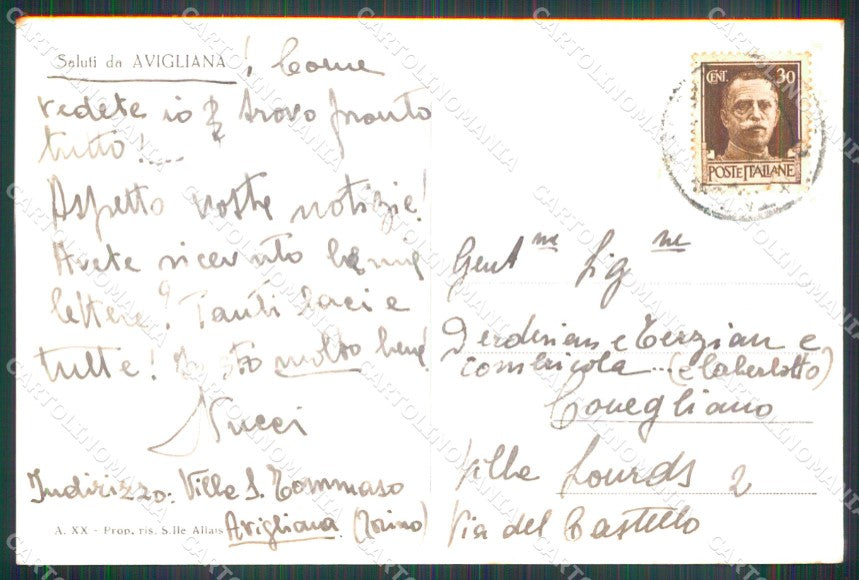 Saluti da AVIGLIANA ! Come
vedete io trovo pronto
tutto!....
Aspetto vostre notizie!
Avete ricevuto le mie
lettere? Tanti baci a
tutte! Io sto molto bene!
Nucci
Indirizzo: Villa S. Tommaso
Avigliana (Torino)
A. XX - Prop. ris. S.lle Allais
CENT. 30
POSTE ITALIANE
Gent me Sig ne
Derderian e Terzian e
combricola ... (e Caberlotto)
Conegliano
Villa Lourds 2
Via del Castello
CARTOLINOMANIA